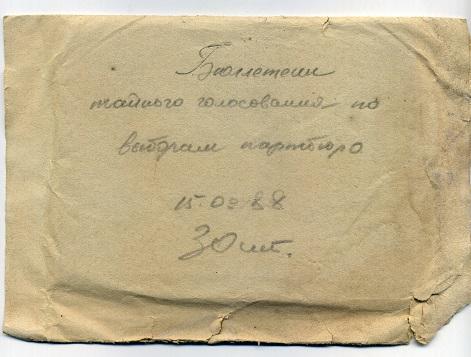 Бюллетени
тайного голосования по
выборам партбюро
15.03.88
30 шт.